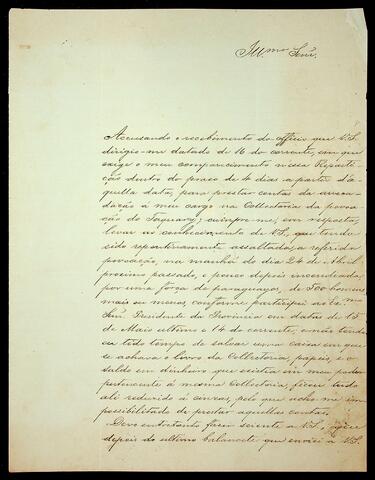 Illmo Senr.
Accusando o recebimento do officio que V.S.
dirigio-me datado de 16 do corrente, em que
exige o meu comparecimento nessa Reparti-
ção dentro do praso de 4 dias a partir d'a-
quella data, para prestar contas da arreca-
dação á meu cargo na Collectoria da povoa-
ção do Taquary; cumpre-me, em resposta,
levar ao conhecimento de V.S., que tendo
sido repentinamente assaltada, a referida
povoação, na manhã do dia 24 de Abril
proximo passado, e pouco depois incendiada,
por uma força de paraguayos, de 300 homens
mais ou menos, conforme participei ao Exmo
Senr. Presidente da Provincia em datas de 15
de Maio ultimo e 14 do corrente; e não tendo
eu tido tempo de salvar uma caixa em que
se achava o livro da Collectoria, papeis, e o
saldo em dinheiro que existia em meu poder
pertencente á mesma Collectoria, ficou tudo
ali reduzido á cinzas, pelo que acho-me im-
possibilitado de prestar aquellas contas.
Devo entretanto fazer sciente a V.S., que
depois do ultimo balancete que enviei a V.S.